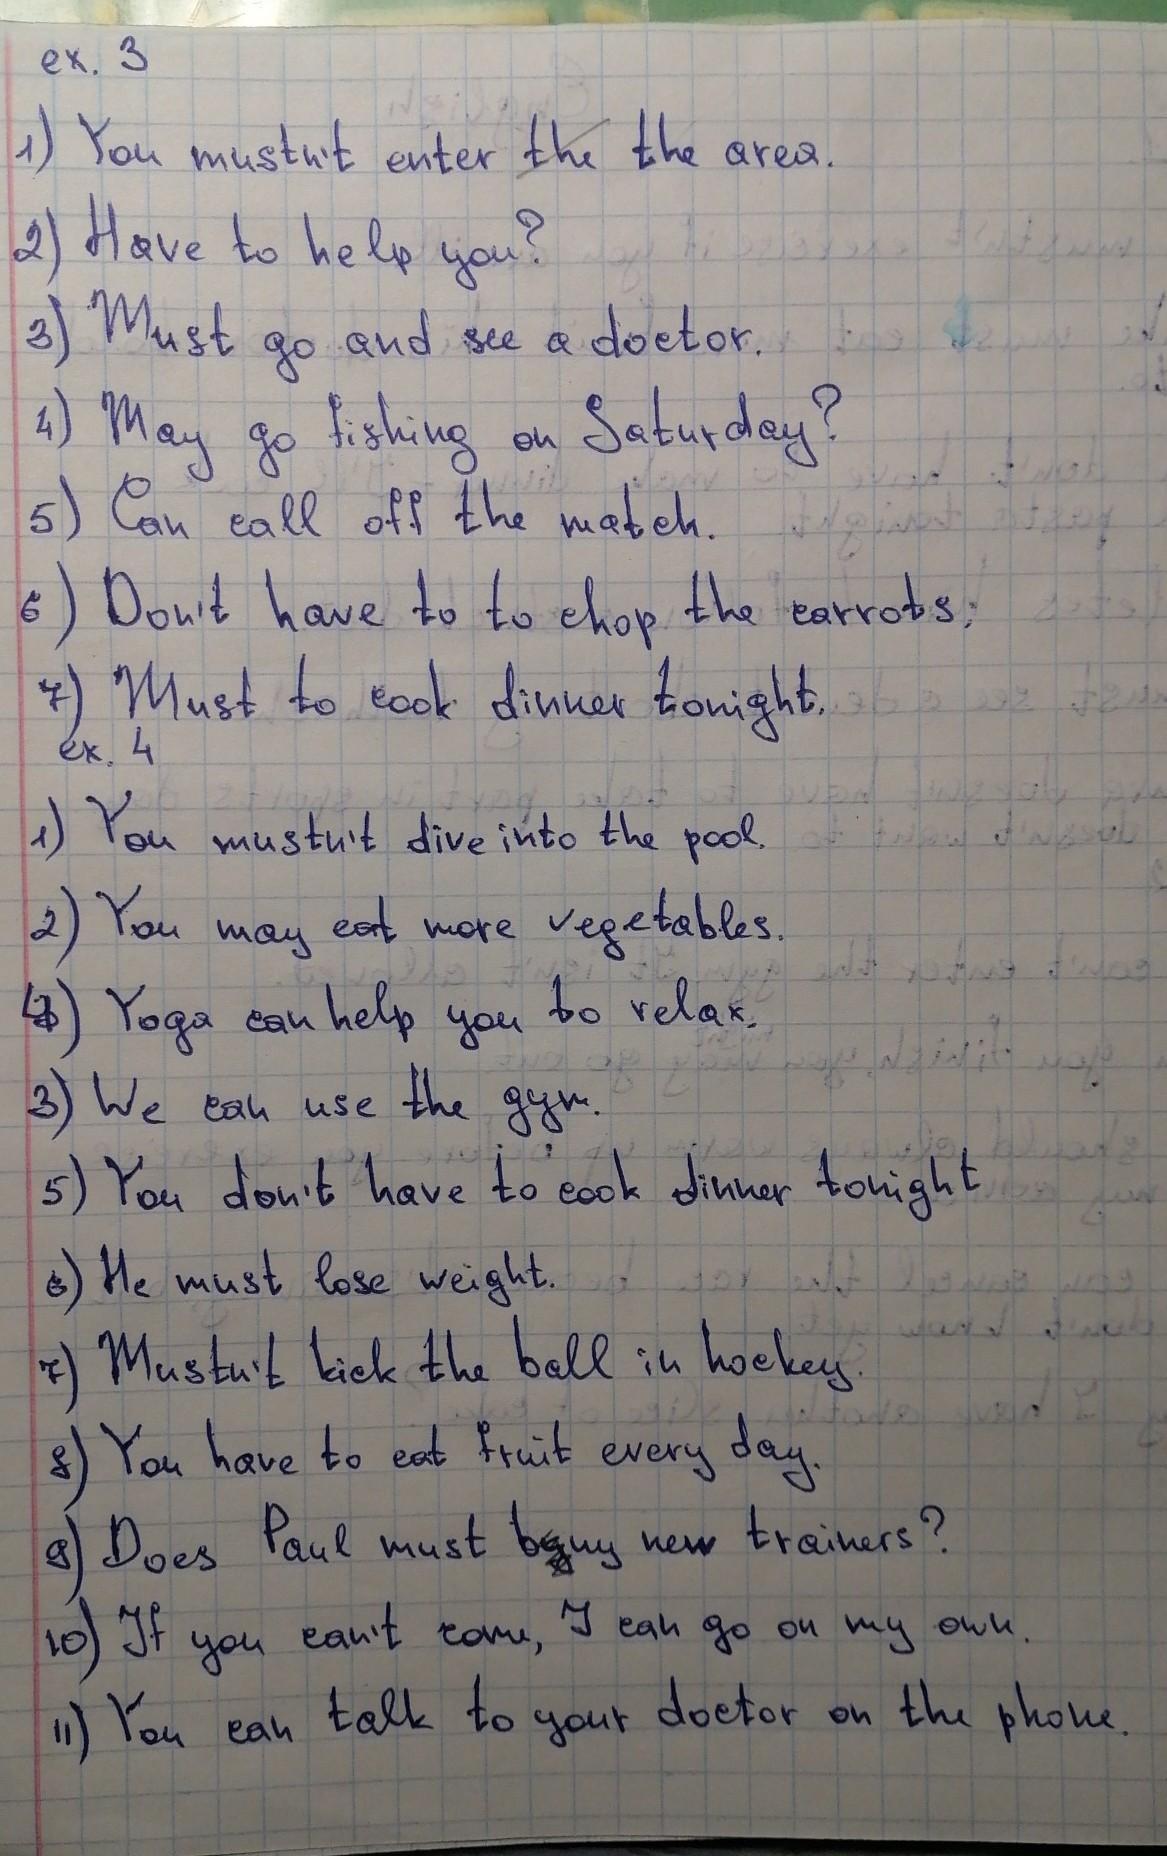 ex. 3
1) You mustn't enter the the area.
2) Have to help you?
3) Must go and see a doctor.
4) May go fishing on Saturday?
5) Can call off the match.
6) Don't have to to chop the carrots.
7) Must to cook dinner tonight.
ex. 4
1) You mustn't dive into the pool.
2) You may eat more vegetables.
4) Yoga can help you to relax.
3) We can use the gym.
5) You don't have to cook dinner tonight
6) He must lose weight.
7) Mustn't kick the ball in hockey.
8) You have to eat fruit every day.
9) Does Paul must buy new trainers?
10) If you can't come, I can go on my own.
11) You can talk to your doctor on the phone.